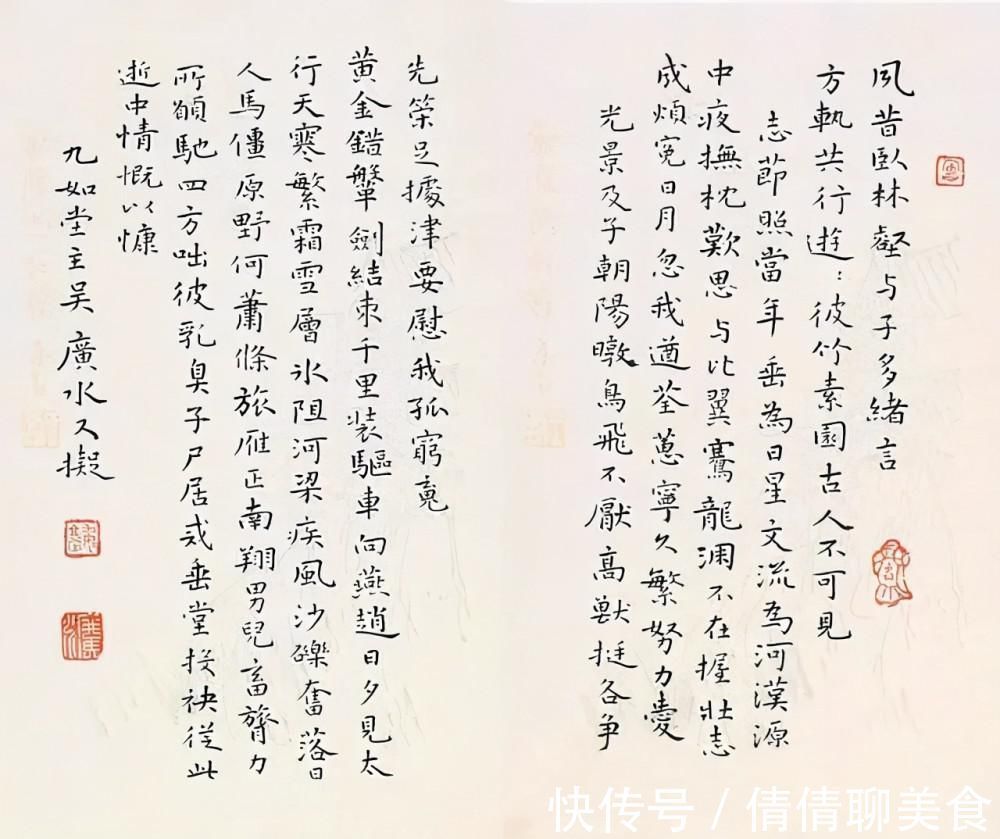 夙昔臥林壑与子多緒言
方軌共行遊:彼竹素園古人不可見
志節照當年垂為日星文流為河漢源
中夜撫枕歎思与比翼騫龍淵不在握壯志
成煩冤日月忽我遒荃蕙寧久繁努力愛
光景及子朝陽暾鳥飛不厭高獸挺各爭
先策足據津要慰我孤窮竟
黃金錯鞶劍結束千里装驅車向燕趙日夕見太
行天寒繁霜雪層氷阻河梁疾風沙礫奮落日
人馬僵原野何蕭條旅雁正南翔男兒畜膂力
所願馳四方咄彼乳臭子尸居戒垂堂投袂從此
逝中情慨以慷
九如堂主吴廣水又擬
快传号 / 倩倩聊美食